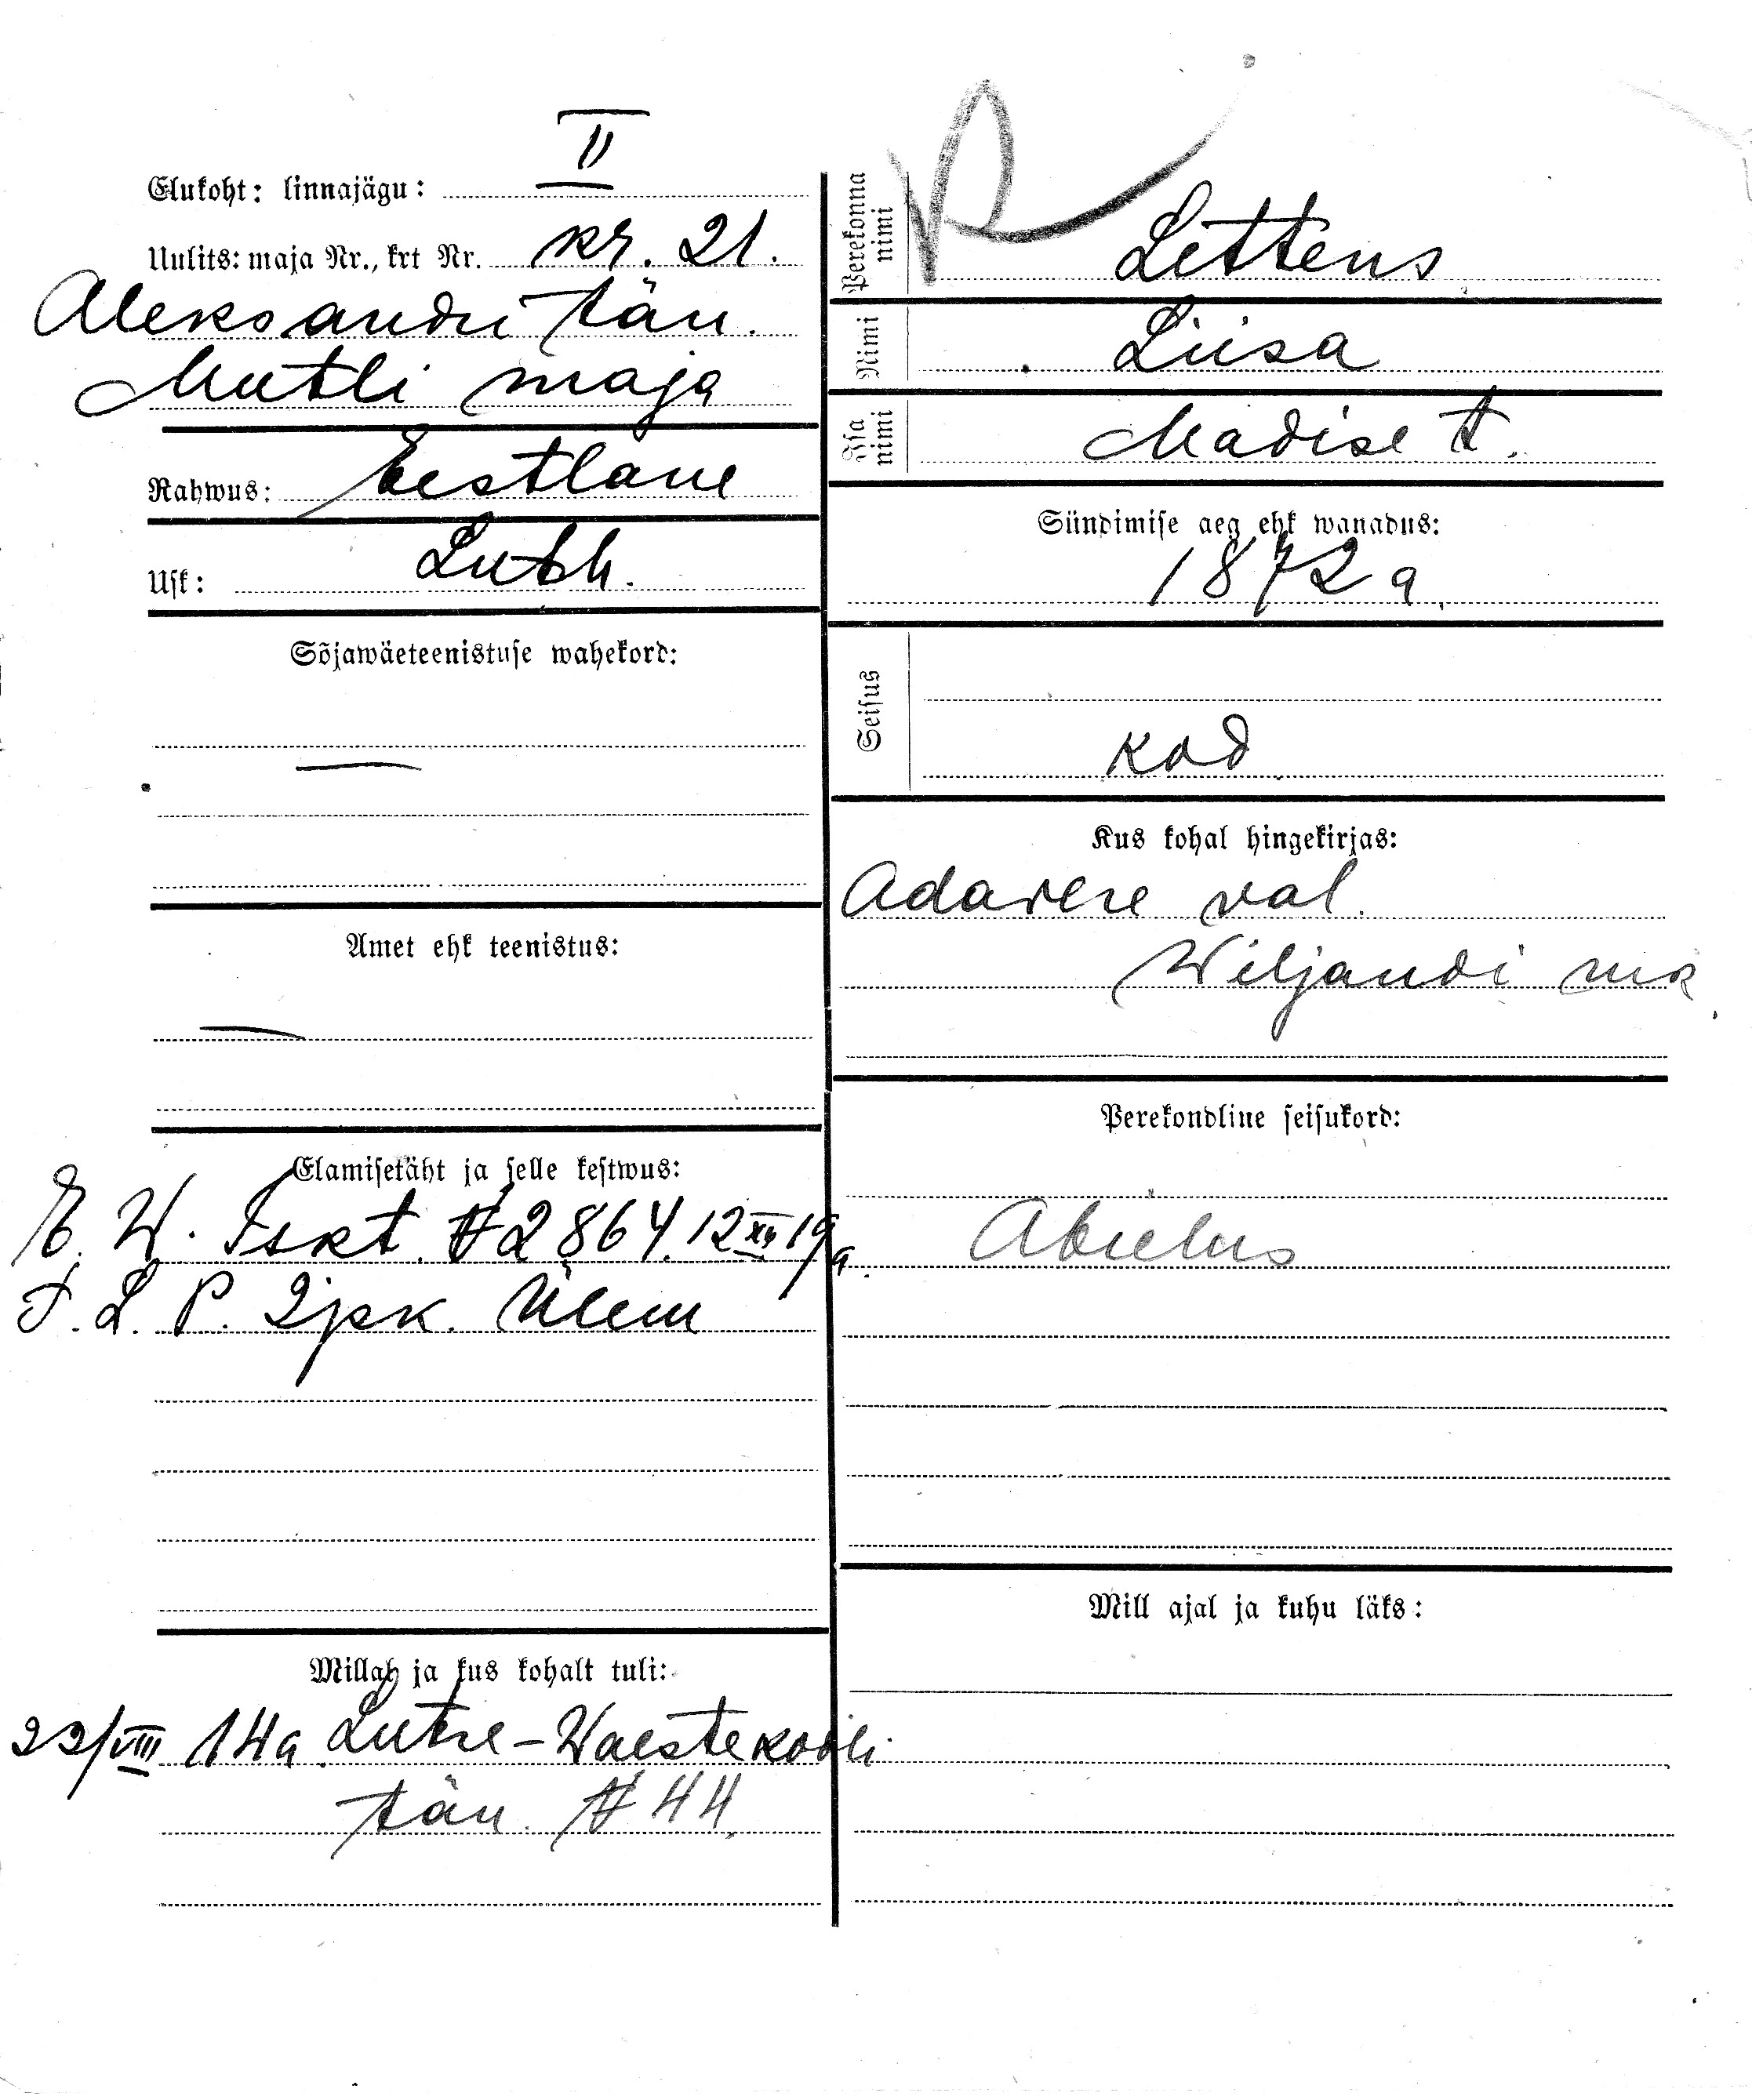 II
Elukoht: linnajägu:
Uulits: maja Nr., krt Nr. kr. 21.
Aleksandri tän.
Mutli maja
Rahwus: Eestlane
Usk: Luth.
Sõjawäeteenistuse wahekord:
—
Amet ehk teenistus:
—
Elamisetäht ja selle kestwus:
E. W. Iskt. № 2864. 12 XII 19 a.
T. L. P. 2 jsk. Ülem
Millal ja kus kohalt tuli:
22/VIII 14 a. Lutre-Waestekooli
tän. № 44.
Perekonna nimi Lettens
Nimi Liisa
Isa nimi Madise t.
Sündimise aeg ehk wanadus:
1872 a.
Seisus
kod
Kus kohal hingekirjas:
Adavere val.
Wiljandi mk.
Perekondline seisukord:
Abielus
Mill ajal ja kuhu läks: